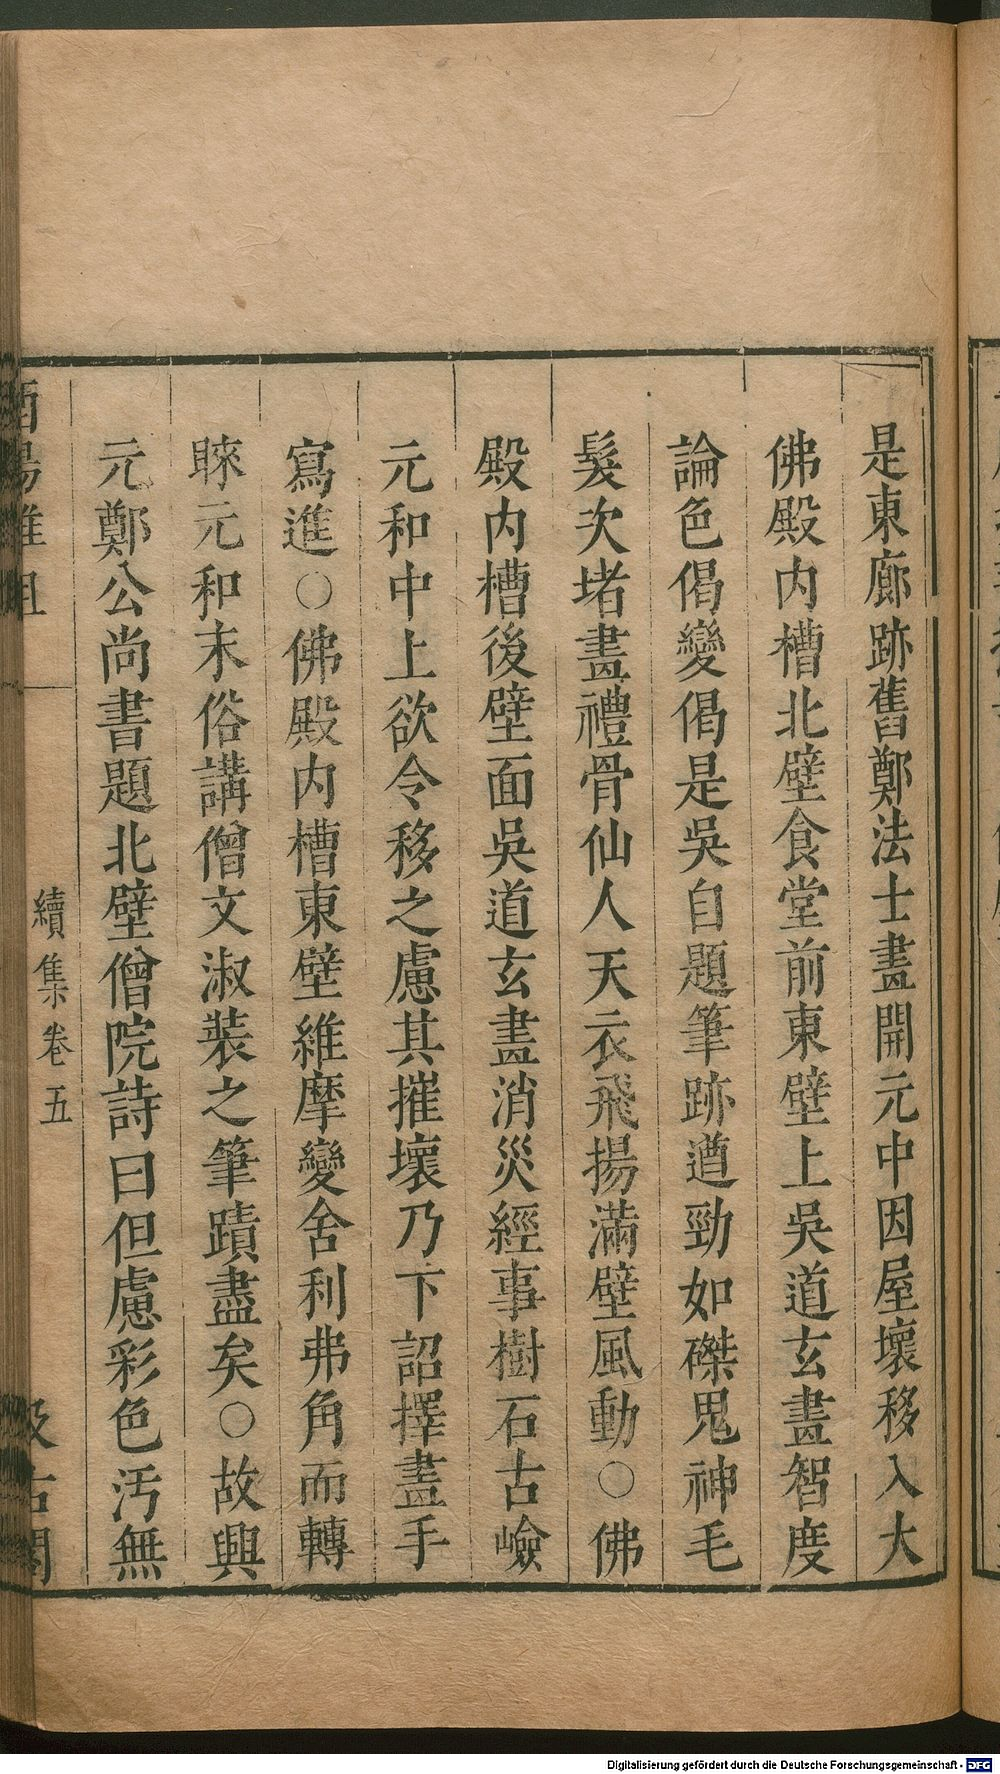 是東廊跡舊鄭法士畫開元中因屋壞移入大
佛殿内槽北壁食堂前東壁上吳道玄畫智度
論色偈變偈是吳自題筆跡遒勁如磔鬼神毛
髮次堵畫禮骨仙人天衣飛揚滿壁風動○佛
殿内槽後壁面吳道玄畫消災經事樹石古嶮
元和中上欲令移之慮其摧壞乃下詔擇畫手
寫進○佛殿内槽東壁維摩變舍利弗角而轉
睞元和末俗講僧文淑裝之筆蹟盡矣○故興
元鄭公尚書題北壁僧院詩曰但慮彩色汚無
酉陽雜俎 續集卷五 汲古閣
Digitalisierung gefördert durch die Deutsche Forschungsgemeinschaft - DFG